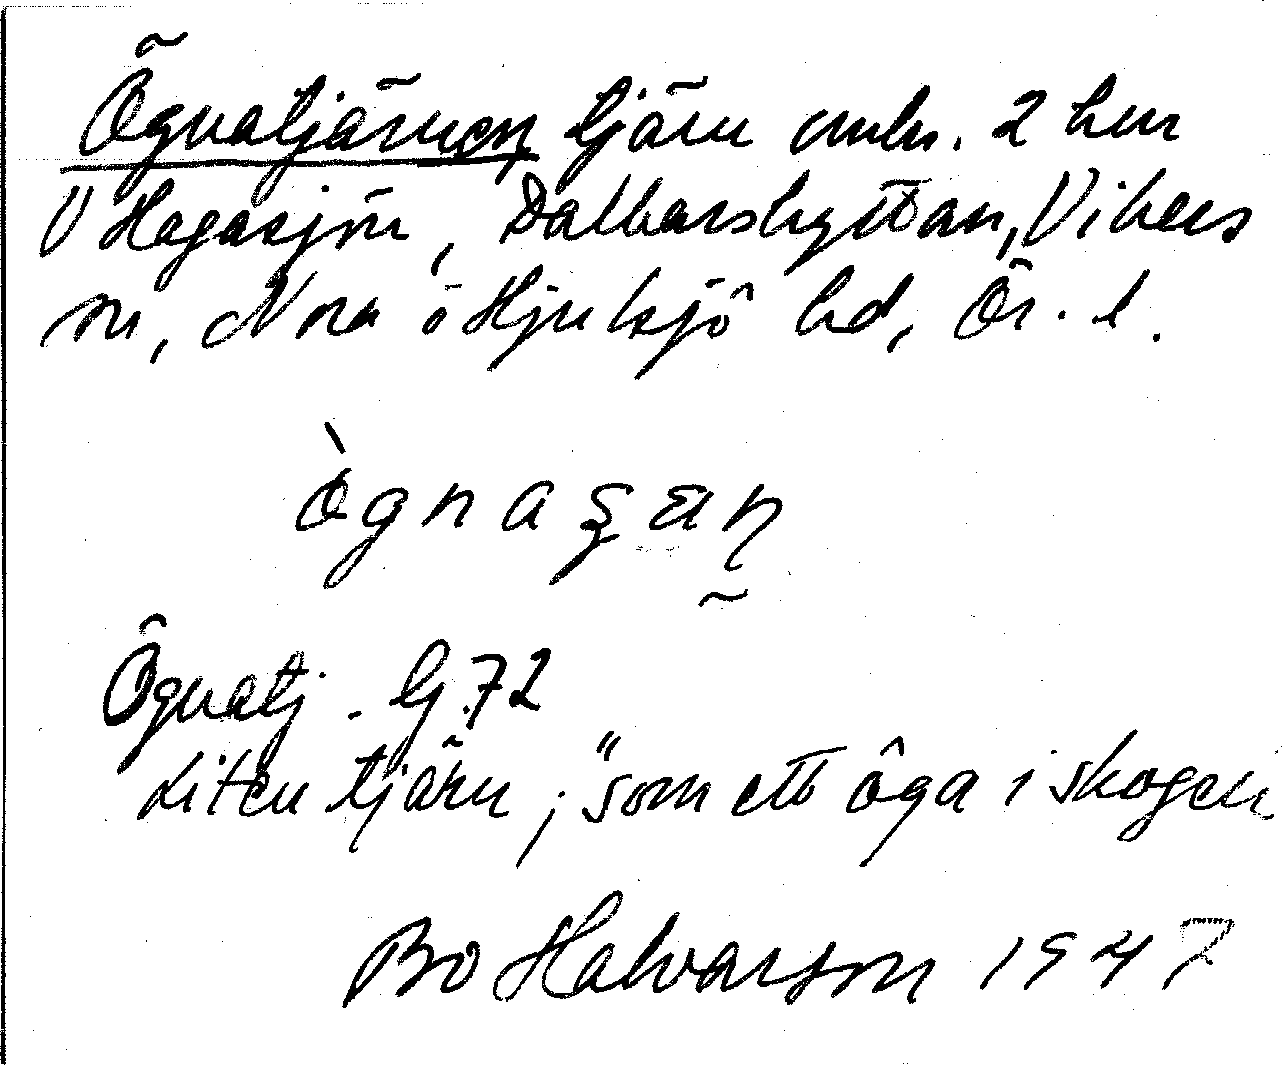 Ögnatjärnen tjärn omkr. 2 km
V Hagasjön, Dalkarshyttan, Vikers
sn, Nora o Hjulsjö hd, Ör. l.
ògnaʂan
Ögnatj. Gj.72
Liten tjärn, "som ett öga i skogen
Bo Halvarson 1947